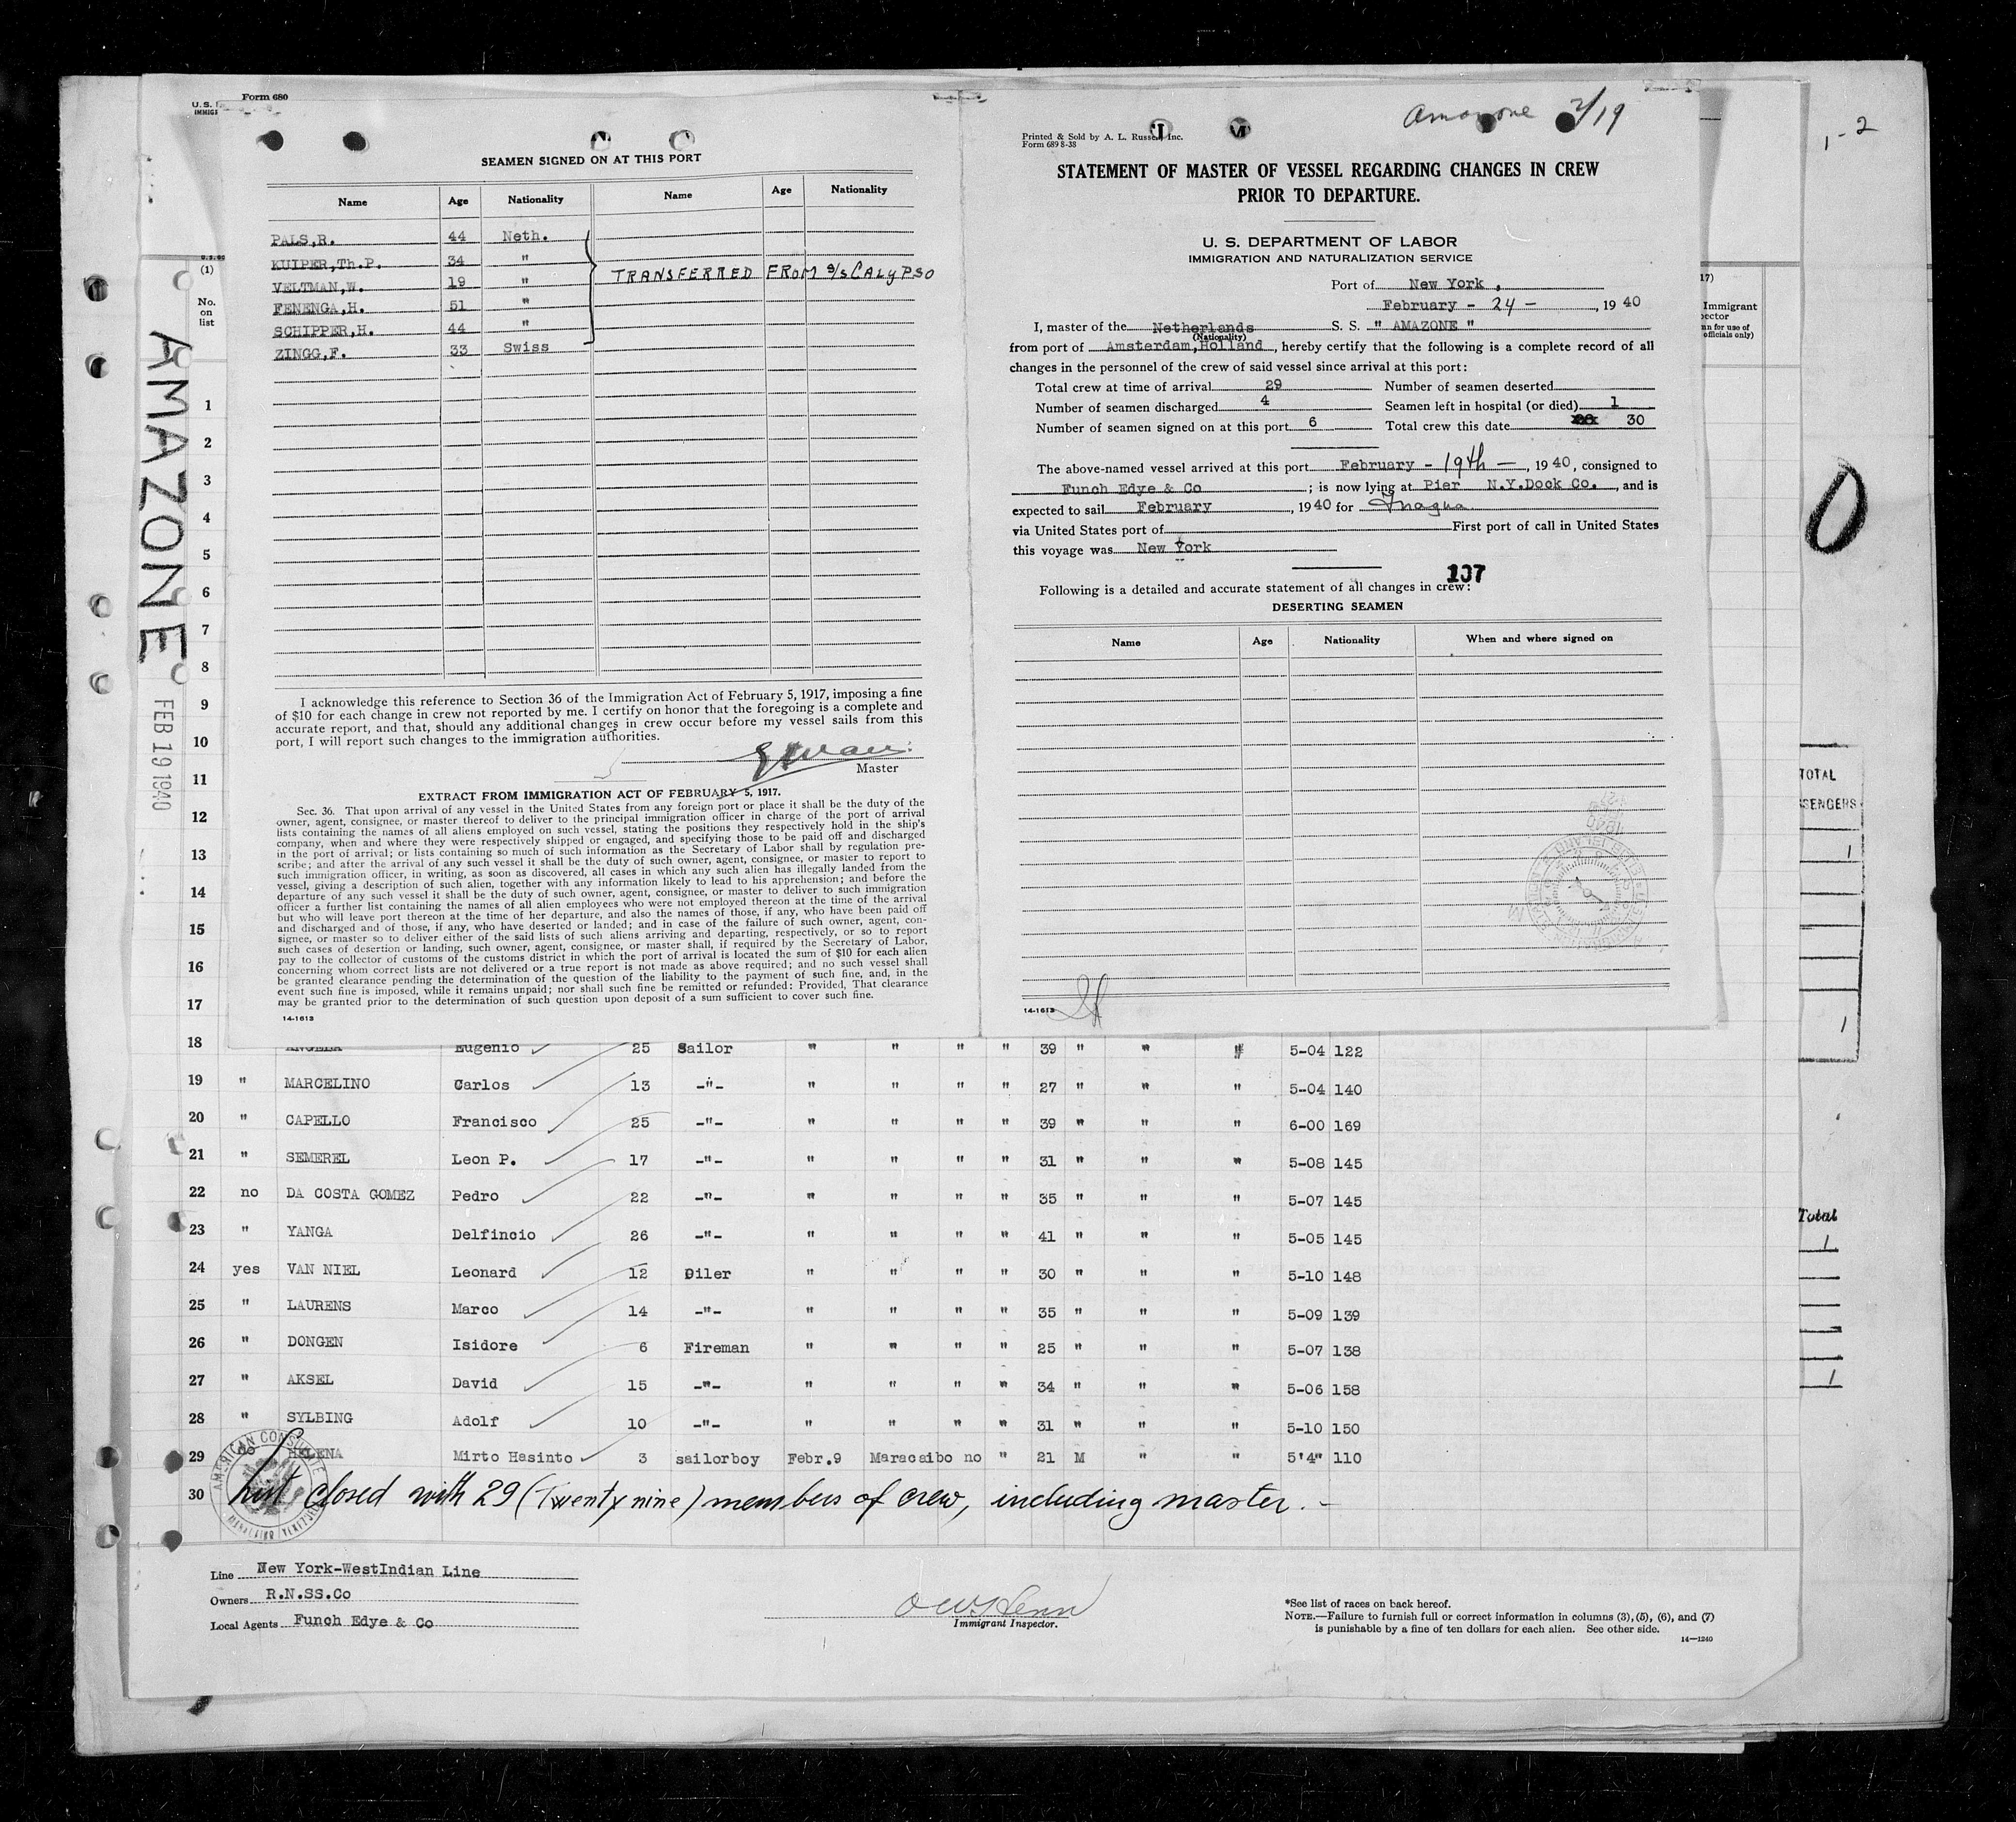 Form 680
U. S.
IMMIGR
SEAMEN SIGNED ON AT THIS PORT
Name Age Nationality Name Age Nationality
PALS,R. 44 Neth.
KUIPER,Th.P. 34 "
VELTMAN,W. 19 "
FENENGA,H. 51 "
SCHIPPER,H. 44 "
ZINGG,F. 33 Swiss
TRANSFERRED FROM S/S CALYPSO
I acknowledge this reference to Section 36 of the Immigration Act of February 5, 1917, imposing a fine
of $10 for each change in crew not reported by me. I certify on honor that the foregoing is a complete and
accurate report, and that, should any additional changes in crew occur before my vessel sails from this
port, I will report such changes to the immigration authorities.
Master
EXTRACT FROM IMMIGRATION ACT OF FEBRUARY 5, 1917.
Sec. 36. That upon arrival of any vessel in the United States from any foreign port or place it shall be the duty of the
owner, agent, consignee, or master thereof to deliver to the principal immigration officer in charge of the port of arrival
lists containing the names of all aliens employed on such vessel, stating the positions they respectively hold in the ship's
company, when and where they were respectively shipped or engaged, and specifying those to be paid off and discharged
in the port of arrival; or lists containing so much of such information as the Secretary of Labor shall by regulation pre-
scribe; and after the arrival of any such vessel it shall be the duty of such owner, agent, consignee, or master to report to
such immigration officer, in writing, as soon as discovered, all cases in which any such alien has illegally landed from the
vessel, giving a description of such alien, together with any information likely to lead to his apprehension; and before the
departure of any such vessel it shall be the duty of such owner, agent, consignee, or master to deliver to such immigration
officer a further list containing the names of all alien employees who were not employed thereon at the time of the arrival
but who will leave port thereon at the time of her departure, and also the names of those, if any, who have been paid off
and discharged and of those, if any, who have deserted or landed; and in case of the failure of such owner, agent, con-
signee, or master so to deliver either of the said lists of such aliens arriving and departing, respectively, or so to report
such cases of desertion or landing, such owner, agent, consignee, or master shall, if required by the Secretary of Labor,
pay to the collector of customs of the customs district in which the port of arrival is located the sum of $10 for each alien
concerning whom correct lists are not delivered or a true report is not made as above required; and no such vessel shall
be granted clearance pending the determination of the question of the liability to the payment of such fine, and, in the
event such fine is imposed, while it remains unpaid; nor shall such fine be remitted or refunded: Provided, That clearance
may be granted prior to the determination of such question upon deposit of a sum sufficient to cover such fine.
14-1613
Amazone 2/19
Printed & Sold by A. L. Russell, Inc.
Form 689 8-38
STATEMENT OF MASTER OF VESSEL REGARDING CHANGES IN CREW
PRIOR TO DEPARTURE.
U. S. DEPARTMENT OF LABOR
IMMIGRATION AND NATURALIZATION SERVICE
Port of New York ,
February - 24 - , 19 40
I, master of the Netherlands S. S. " AMAZONE "
(Nationality)
from port of Amsterdam,Holland , hereby certify that the following is a complete record of all
changes in the personnel of the crew of said vessel since arrival at this port:
Total crew at time of arrival 29 Number of seamen deserted
Number of seamen discharged 4 Seamen left in hospital (or died) 1
Number of seamen signed on at this port 6 Total crew this date 30
The above-named vessel arrived at this port February - 19th - , 19 40 , consigned to
Funch Edye & Co ; is now lying at Pier N.Y.Dock Co. , and is
expected to sail February , 19 40 for Inagua
via United States port of First port of call in United States
this voyage was New York
107
Following is a detailed and accurate statement of all changes in crew:
DESERTING SEAMEN
Name Age Nationality When and where signed on
14-1613
AMAZONE
FEB 19 1940
(1)
No.
on
list
1
2
3
4
5
6
7
8
9
10
11
12
13
14
15
16
17
17)
Immigrant
officials only)
1-2
0
TOTAL
SSENGERS
1
1
Total
1
1
18 ANGELA Eugenio 25 Sailor " " " " 39 " " " 5-04 122
19 " MARCELINO Carlos 13 -"- " " " " 27 " " " 5-04 140
20 " CAPELLO Francisco 25 -"- " " " " 39 " " " 6-00 169
21 " SEMEREL Leon P. 17 -"- " " " " 31 " " " 5-08 145
22 no DA COSTA GOMEZ Pedro 22 -"- " " " " 35 " " " 5-07 145
23 " YANGA Delfincio 26 -"- " " " " 41 " " " 5-05 145
24 yes VAN NIEL Leonard 12 Oiler " " " " 30 " " " 5-10 148
25 " LAURENS Marco 14 -"- " " " " 35 " " " 5-09 139
26 " DONGEN Isidore 6 Fireman " " " " 25 " " " 5-07 138
27 " AKSEL David 15 -"- " " " " 34 " " " 5-06 158
28 " SYLBING Adolf 10 -"- " " " " 31 " " " 5-10 150
29 do HELENA Mirto Hasinto 3 sailorboy Febr.9 Maracaibo no " 21 M " " 5'4" 110
30 List closed with 29 (Twenty nine) members of crew, including master. -
AMERICAN CONSULATE
MARACAIBO VENEZUELA
Line New York-WestIndian Line
Owners R.N.SS.Co
Local Agents Funch Edye & Co
Immigrant Inspector.
*See list of races on back hereof.
NOTE.—Failure to furnish full or correct information in columns (3), (5), (6), and (7)
is punishable by a fine of ten dollars for each alien. See other side.
14—1240